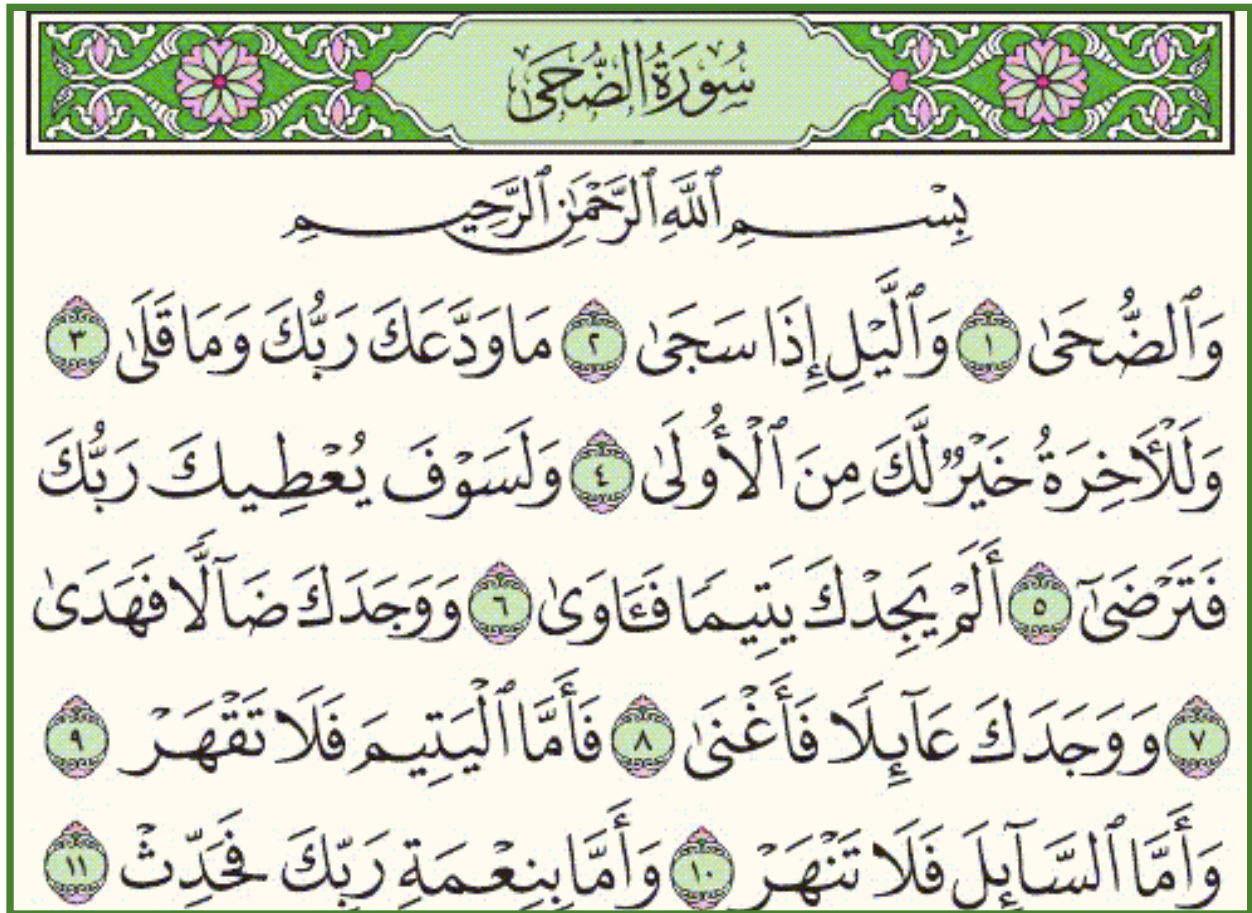 سُورَةُ الضُّحَىٰ
بِسْمِ ٱللَّهِ ٱلرَّحْمَٰنِ ٱلرَّحِيمِ
وَٱلضُّحَىٰ ١ وَٱلَّيْلِ إِذَا سَجَىٰ ٢ مَا وَدَّعَكَ رَبُّكَ وَمَا قَلَىٰ ٣
وَلَلْأَخِرَةُ خَيْرٌ لَّكَ مِنَ ٱلْأُولَىٰ ٤ وَلَسَوْفَ يُعْطِيكَ رَبُّكَ
فَتَرْضَىٰٓ ٥ أَلَمْ يَجِدْكَ يَتِيمًا فَـَٔاوَىٰ ٦ وَوَجَدَكَ ضَآلًّا فَهَدَىٰ
٧ وَوَجَدَكَ عَآئِلًا فَأَغْنَىٰ ٨ فَأَمَّا ٱلْيَتِيمَ فَلَا تَقْهَرْ ٩
وَأَمَّا ٱلسَّآئِلَ فَلَا تَنْهَرْ ١٠ وَأَمَّا بِنِعْمَةِ رَبِّكَ فَحَدِّثْ ١١